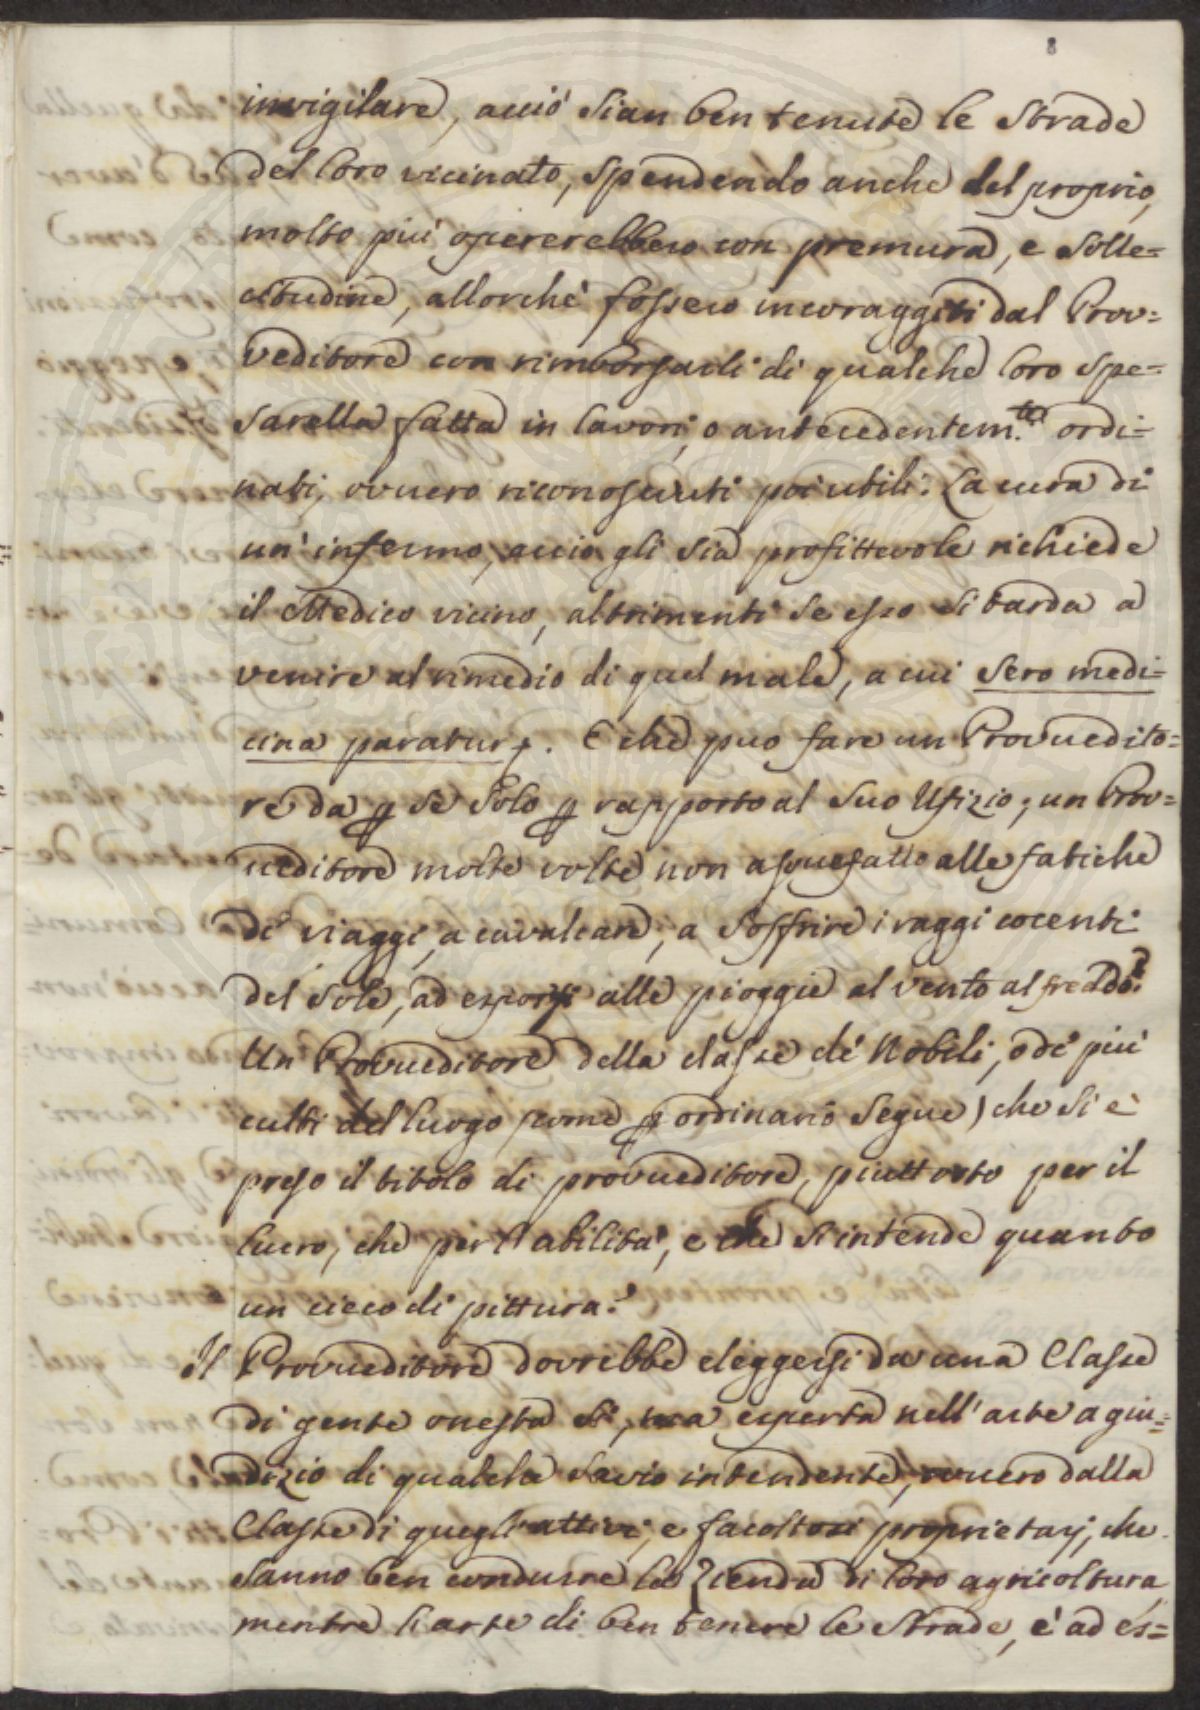 8
invigilare, acciò sian ben tenute le Strade
del loro vicinato, spendendo anche del proprio,
molto più opererebbero con premura, e solle=
citudine, allorchè fossero incoraggiti dal Prov=
veditore con rimborsarli di qualche loro spe=
sarella fatta in lavori, o antecedentem.te ordi=
nati, ovvero riconosciuti poi utili. La cura di
un' infermo, acciò gli sia profittevole richiede
il Medico vicino, altrimenti se esso si tarda a
venire al rimedio di quel male, a cui sero medi=
cina paratur. E che può fare un Provvedito=
re da p se solo p rapporto al suo Ufizio; un Prov=
veditore molte volte non assuefatto alle fatiche
di viaggi, a cavalcare, a soffrire i raggi cocenti
del sole, ad esporsi alle pioggie al vento al freddo?
Un Provveditore della classe de' Nobili, o de' più
culti del luogo (come p ordinario segue) che si è
preso il titolo di provveditore, piuttosto per il
lucro, che per l'abilità, e che s'intende quanto
un cieco di pittura?
Il Provveditore dovrebbe eleggersi da una Classe
di gente onesta sì, ma esperta nell'arte a giu=
dizio di qualche savio intendente, ovvero dalla
Classe di quegli attivi, e facoltosi proprietarj, che
sanno ben condurre la Zienda di loro agricoltura
mentre l'arte di ben tenere le Strade, è ad es=